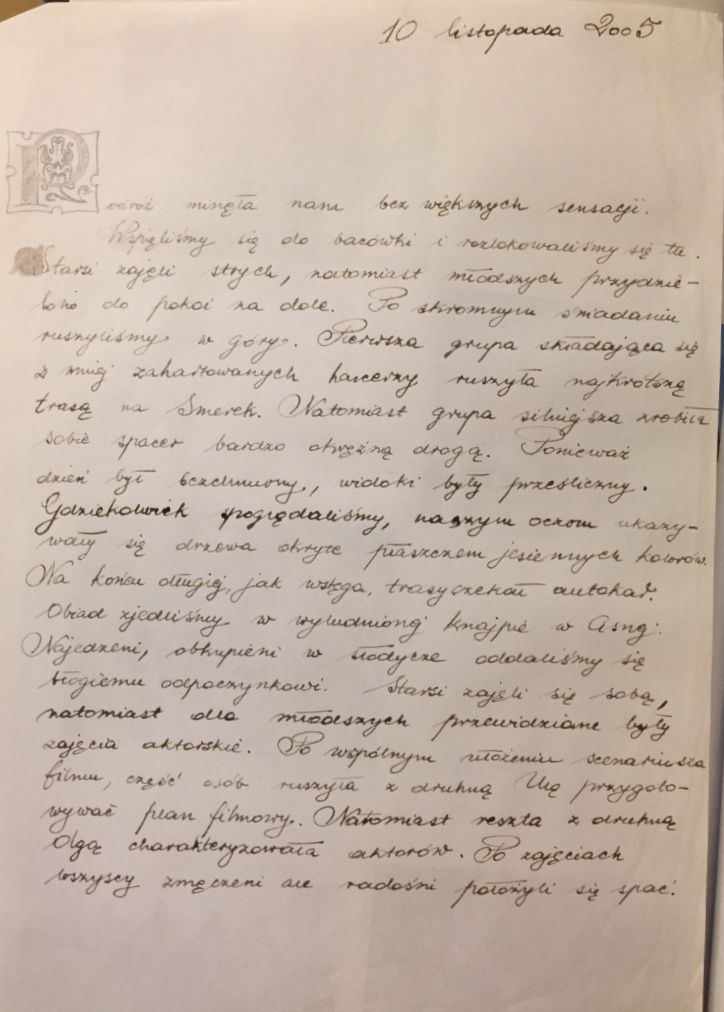 10 listopada 2005
Podróż minęła nam bez większych sensacji.
Wspięliśmy się do bacówki i rozlokowaliśmy się tu.
Starsi zajęli strych, natomiast młodszych przydzie-
lono do pokoi na dole. Po skromnym śniadaniu
ruszyliśmy w góry. Pierwsza grupa składająca się
z mniej zahartowanych harcerzy ruszyła najkrótszą
trasą na Smerek. Natomiast grupa silniejsza zrobiła
sobie spacer bardzo okrężną drogą. Ponieważ
dzień był bezchmurny, widoki były prześliczny.
Gdziekolwiek spoglądaliśmy, naszym oczom ukazy-
wały się drzewa okryte płaszczem jesiennych kolorów.
Na końcu długiej, jak wstęga, trasy czekał autokar.
Obiad zjedliśmy w wyludnionej knajpie w
Najedzeni, obkupieni w słodycze oddaliśmy się
błogiemu odpoczynkowi. Starsi zajęli się sobą,
natomiast dla młodszych przewidziane były
zajęcia aktorskie. Po wspólnym ułożeniu scenariusza
filmu, część osób ruszyła z druhną Ulą przygoto-
wywać plan filmowy. Natomiast reszta z druhną
Olgą charakteryzowała aktorów. Po zajęciach
wszyscy zmęczeni ale radośni położyli się spać.